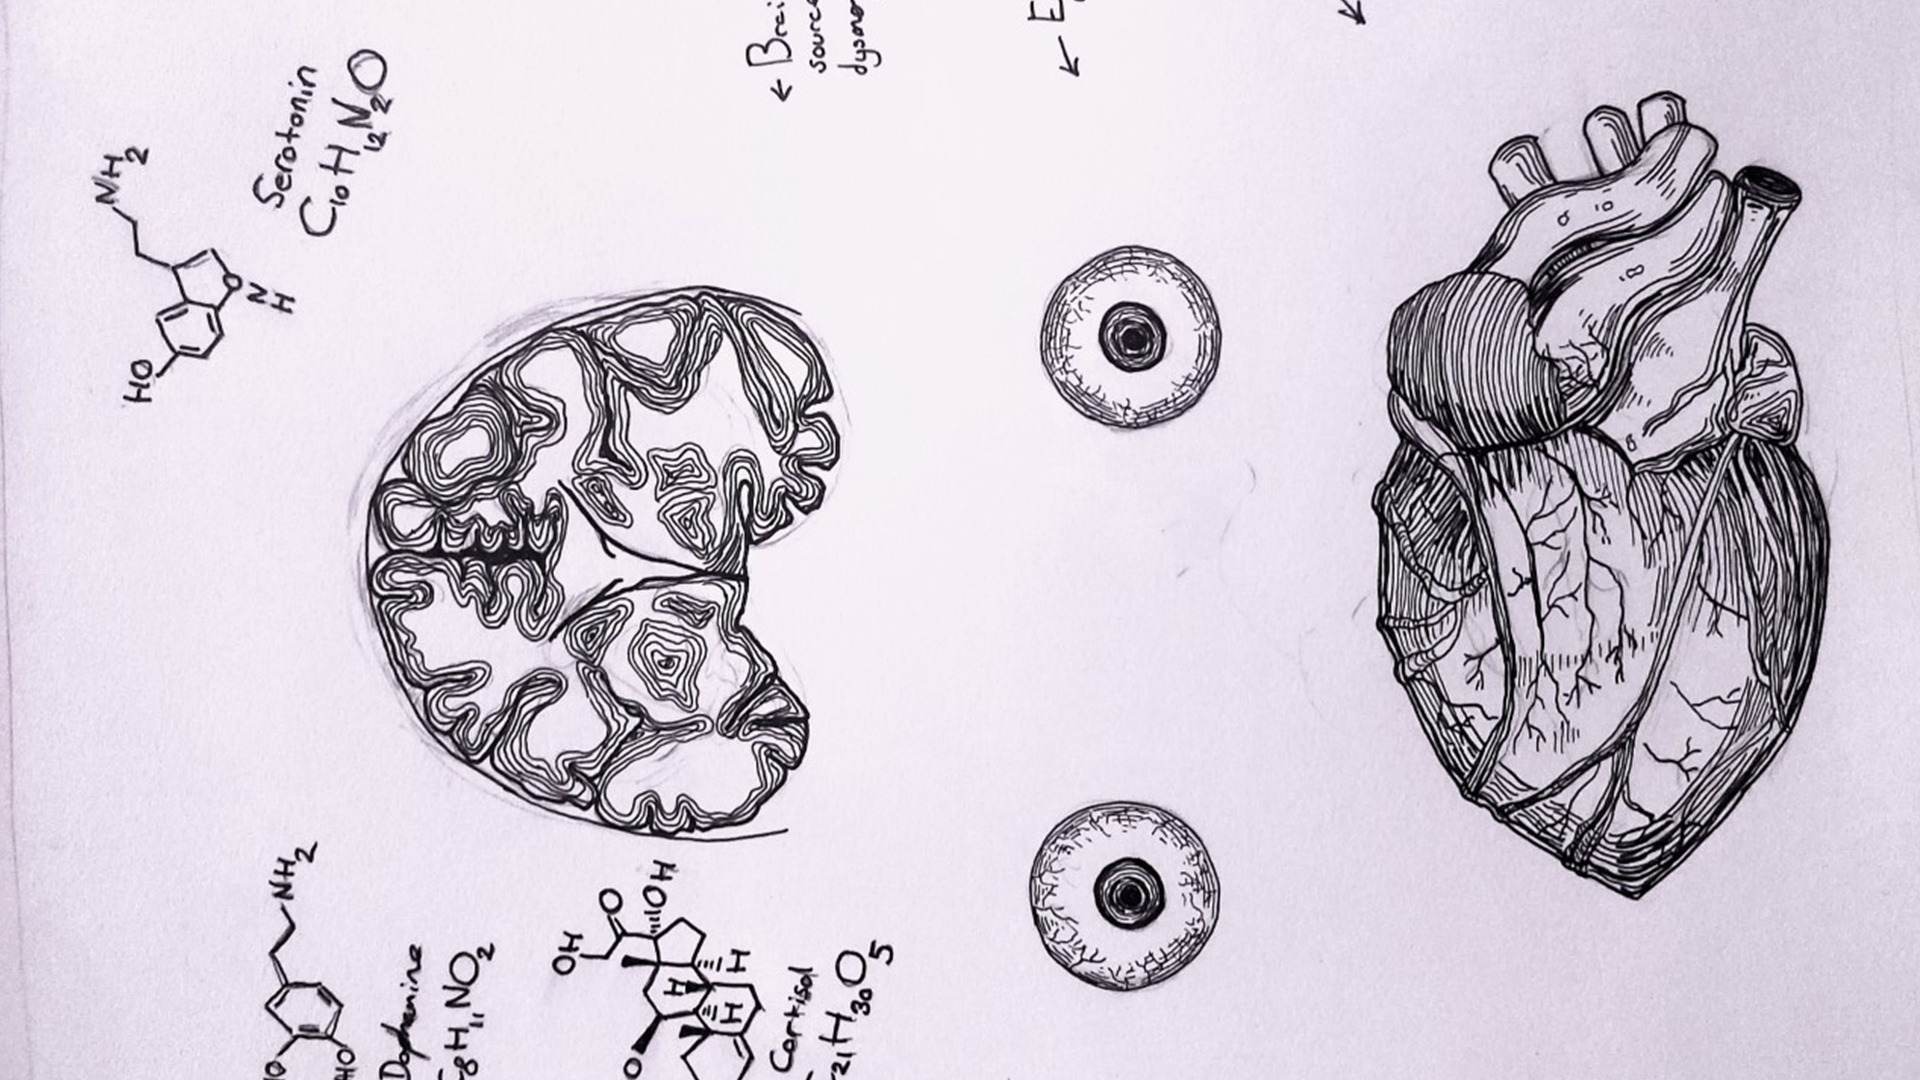 NH2
HO
N
H
Serotonin
C10H12N2O
← Brai
sourc
dysmo
← E
←
NH2
HO
Dopamine
C8H11NO2
OH
O
OH
H
H
H
O
Cortisol
C21H30O5